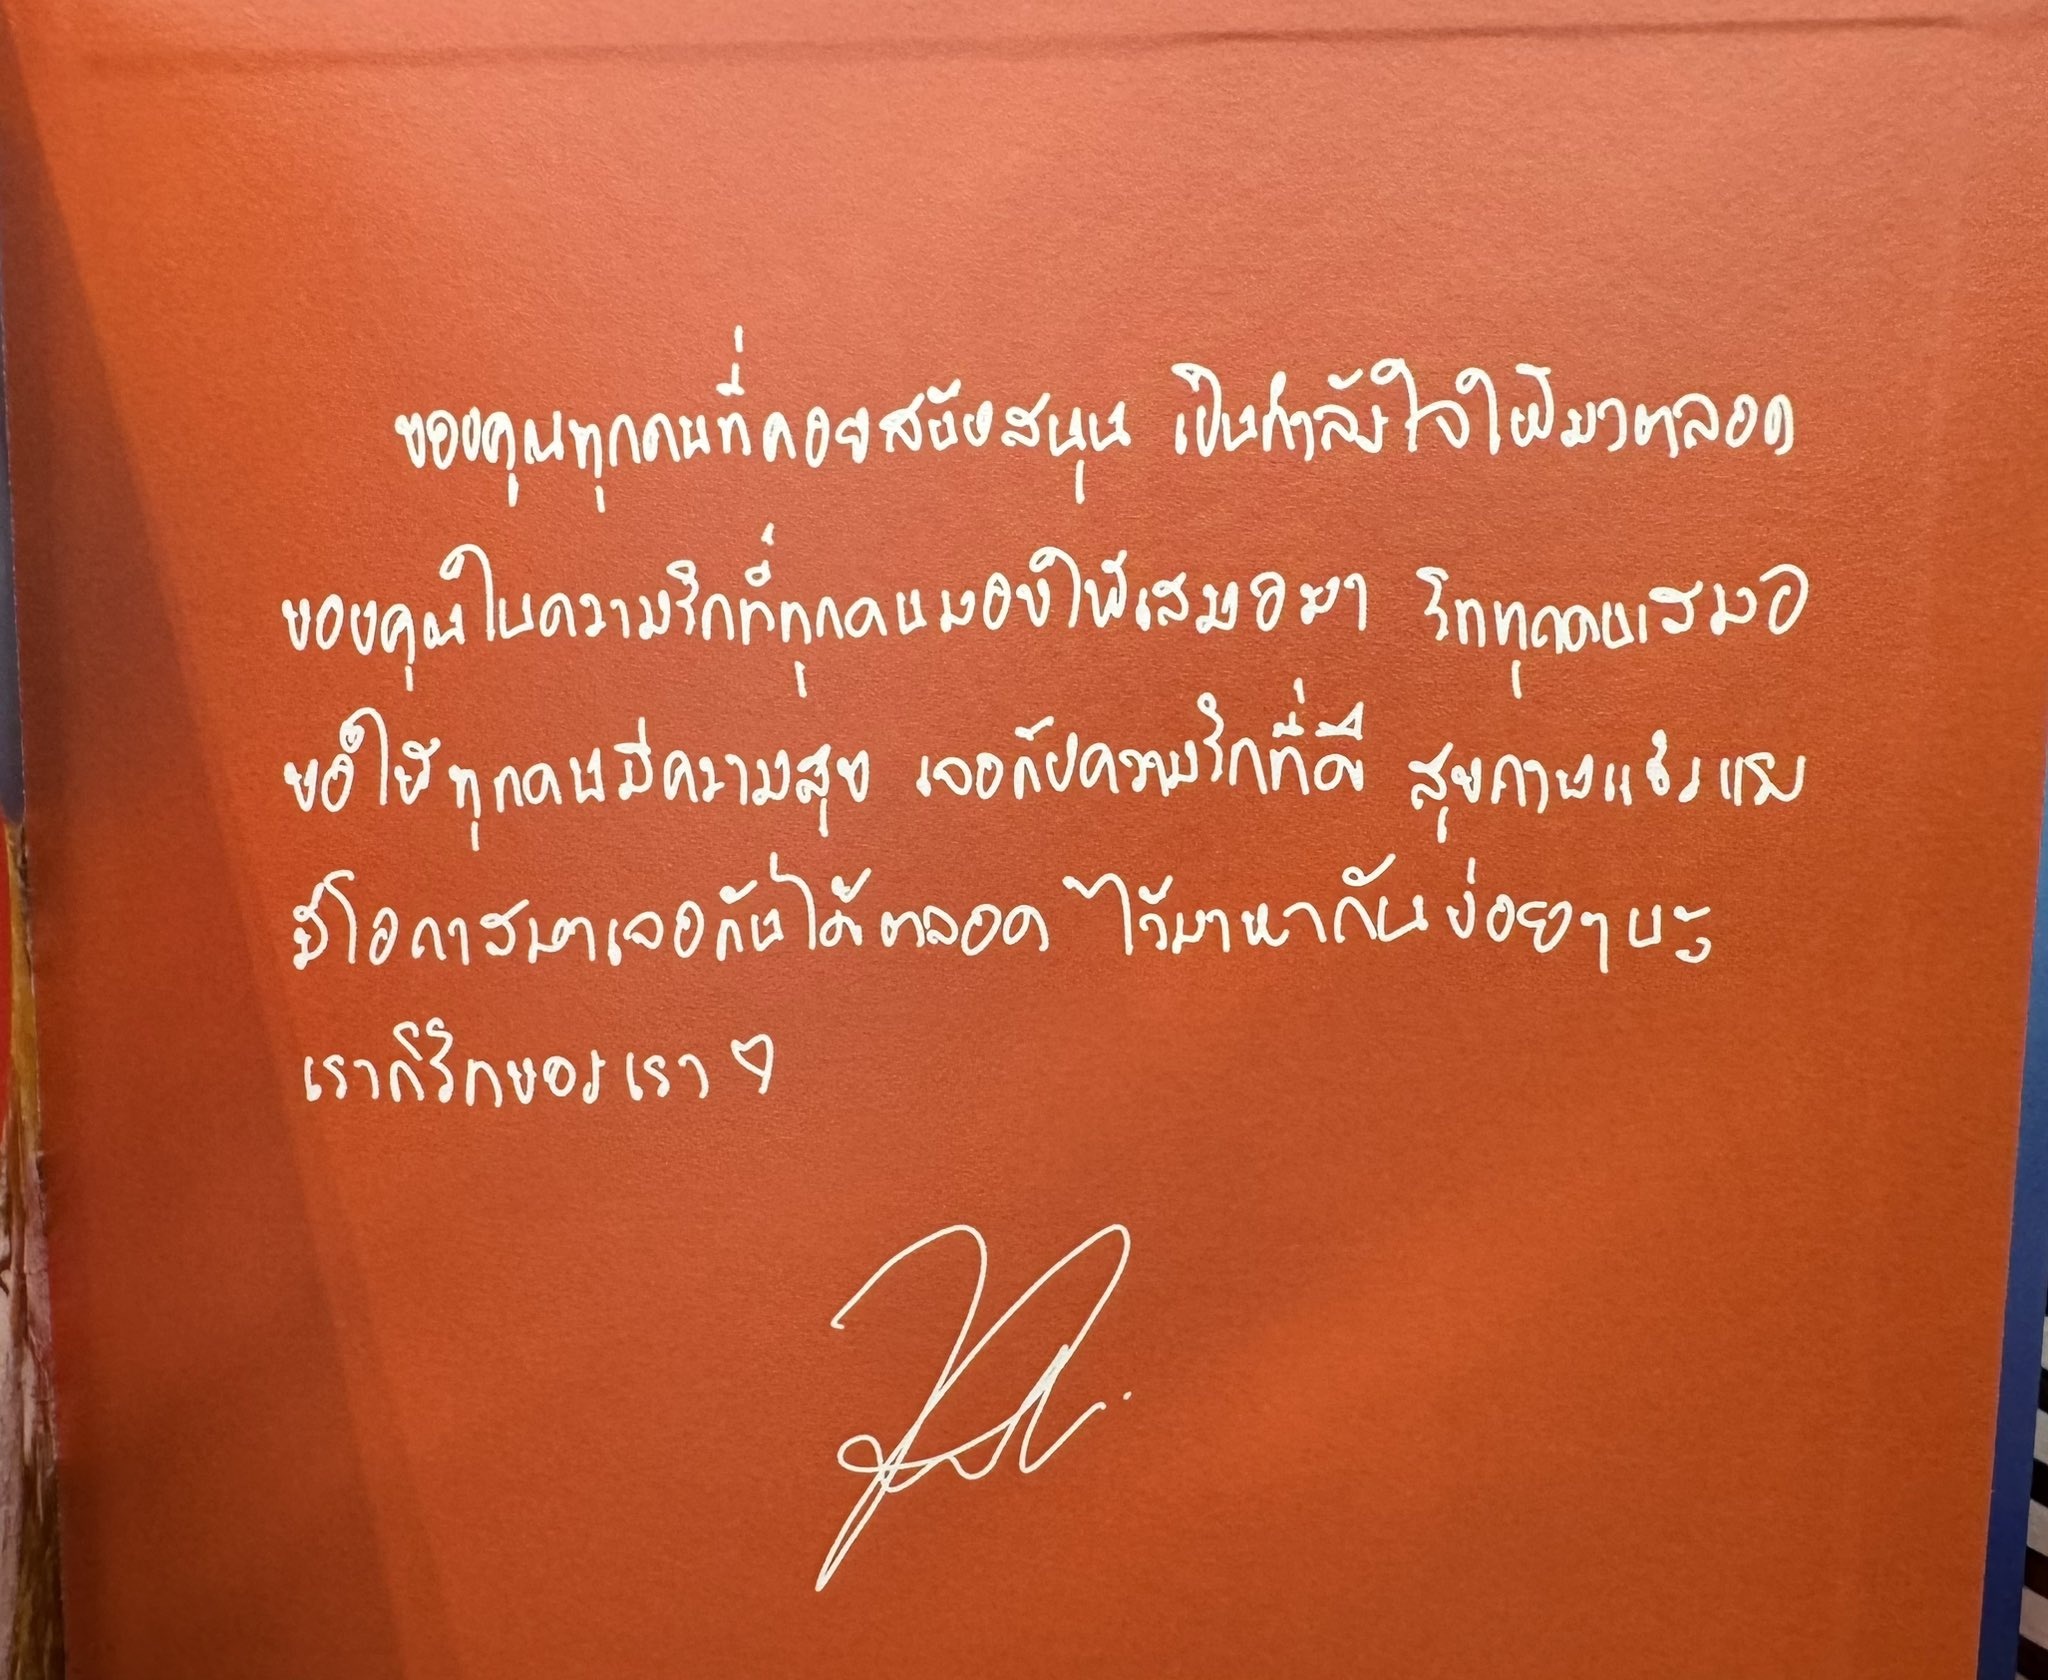 ขอบคุณทุกคนที่คอยสนับสนุน เป็นกำลังใจให้มาตลอด
ขอบคุณในความรักที่ทุกคนมอบให้เสมอมา รักทุกคนเสมอ
ขอให้ทุกคนมีความสุข เจอกับความรักที่ดี สุขภาพแข็งแรง
มีโอกาสมาเจอกันได้ตลอด ไว้มาหากันบ่อยๆนะ
เราก็รักของเรา ♡